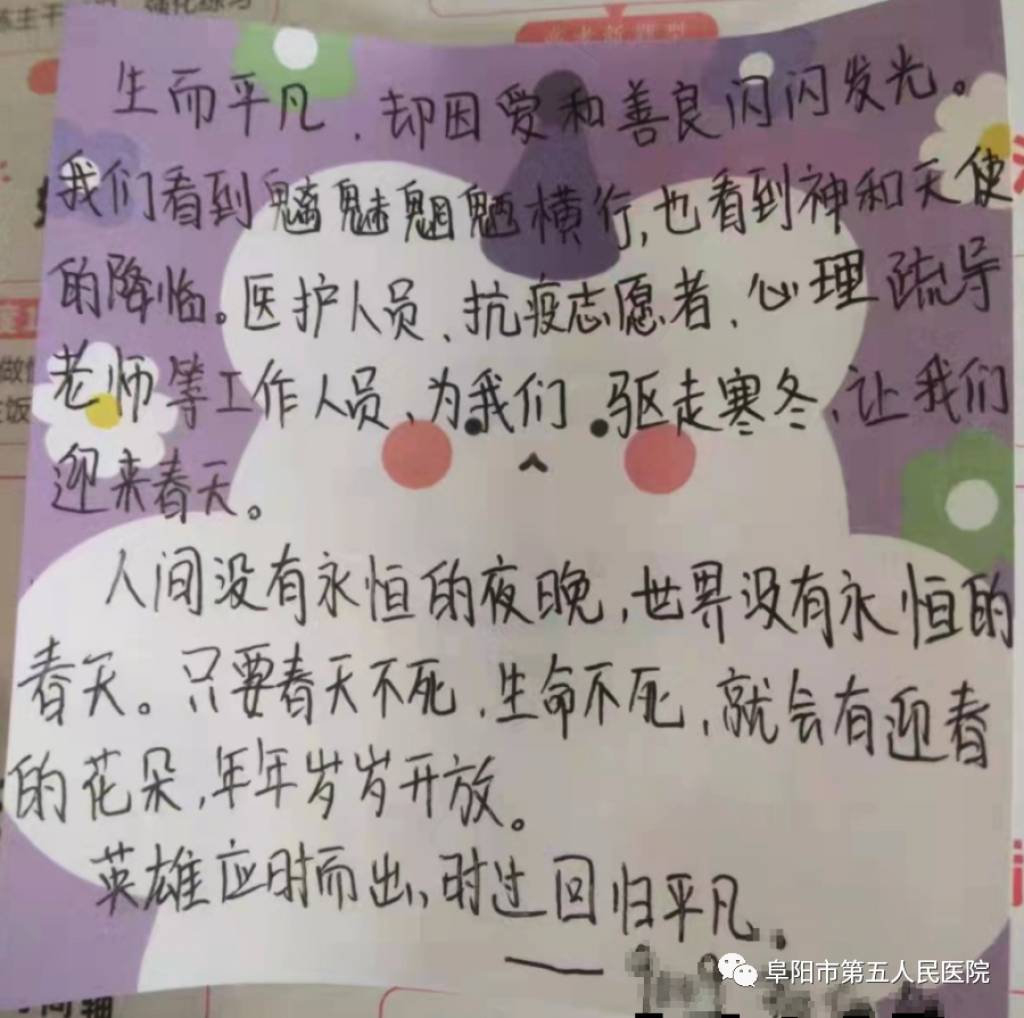 强化练习
高考新题型
生而平凡，却因爱和善良闪闪发光。
我们看到魑魅魍魉横行，也看到神和天使
的降临。医护人员、抗疫志愿者、心理疏导
老师等工作人员、为我们驱走寒冬，让我们
迎来春天。
人间没有永恒的夜晚，世界没有永恒的
春天。只要春天不死，生命不死，就会有迎春
的花朵，年年岁岁开放。
英雄应时而出，时过回归平凡。
——
阜阳市第五人民医院